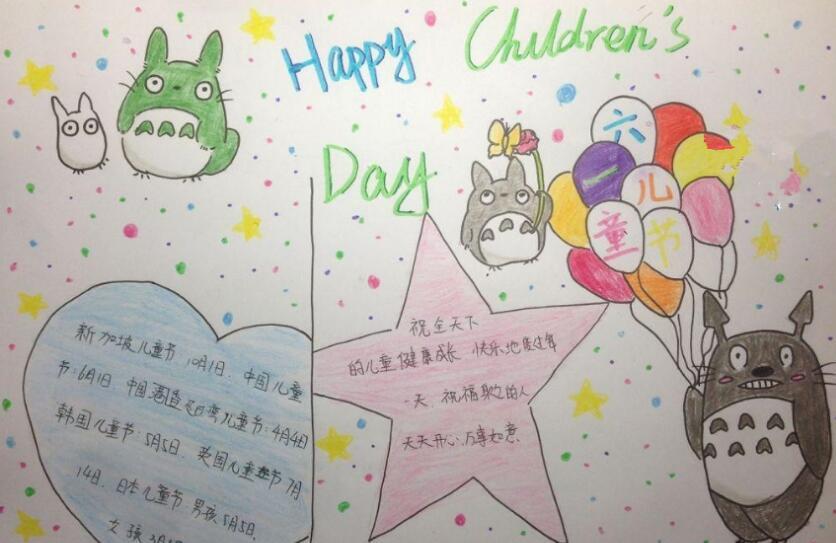 Happy Children's
Day
六
一儿
童节
新加坡儿童节 10月1日、中国儿童
节:6月1日、中国 湾儿童节:4月4日
韩国儿童节:5月5日、英国儿童节7月
14日、日本儿童节 男孩5月5日,
女孩3月
祝全天下
的儿童健康成长 快乐地度过每
一天、祝福 的人
天天开心、万事如意